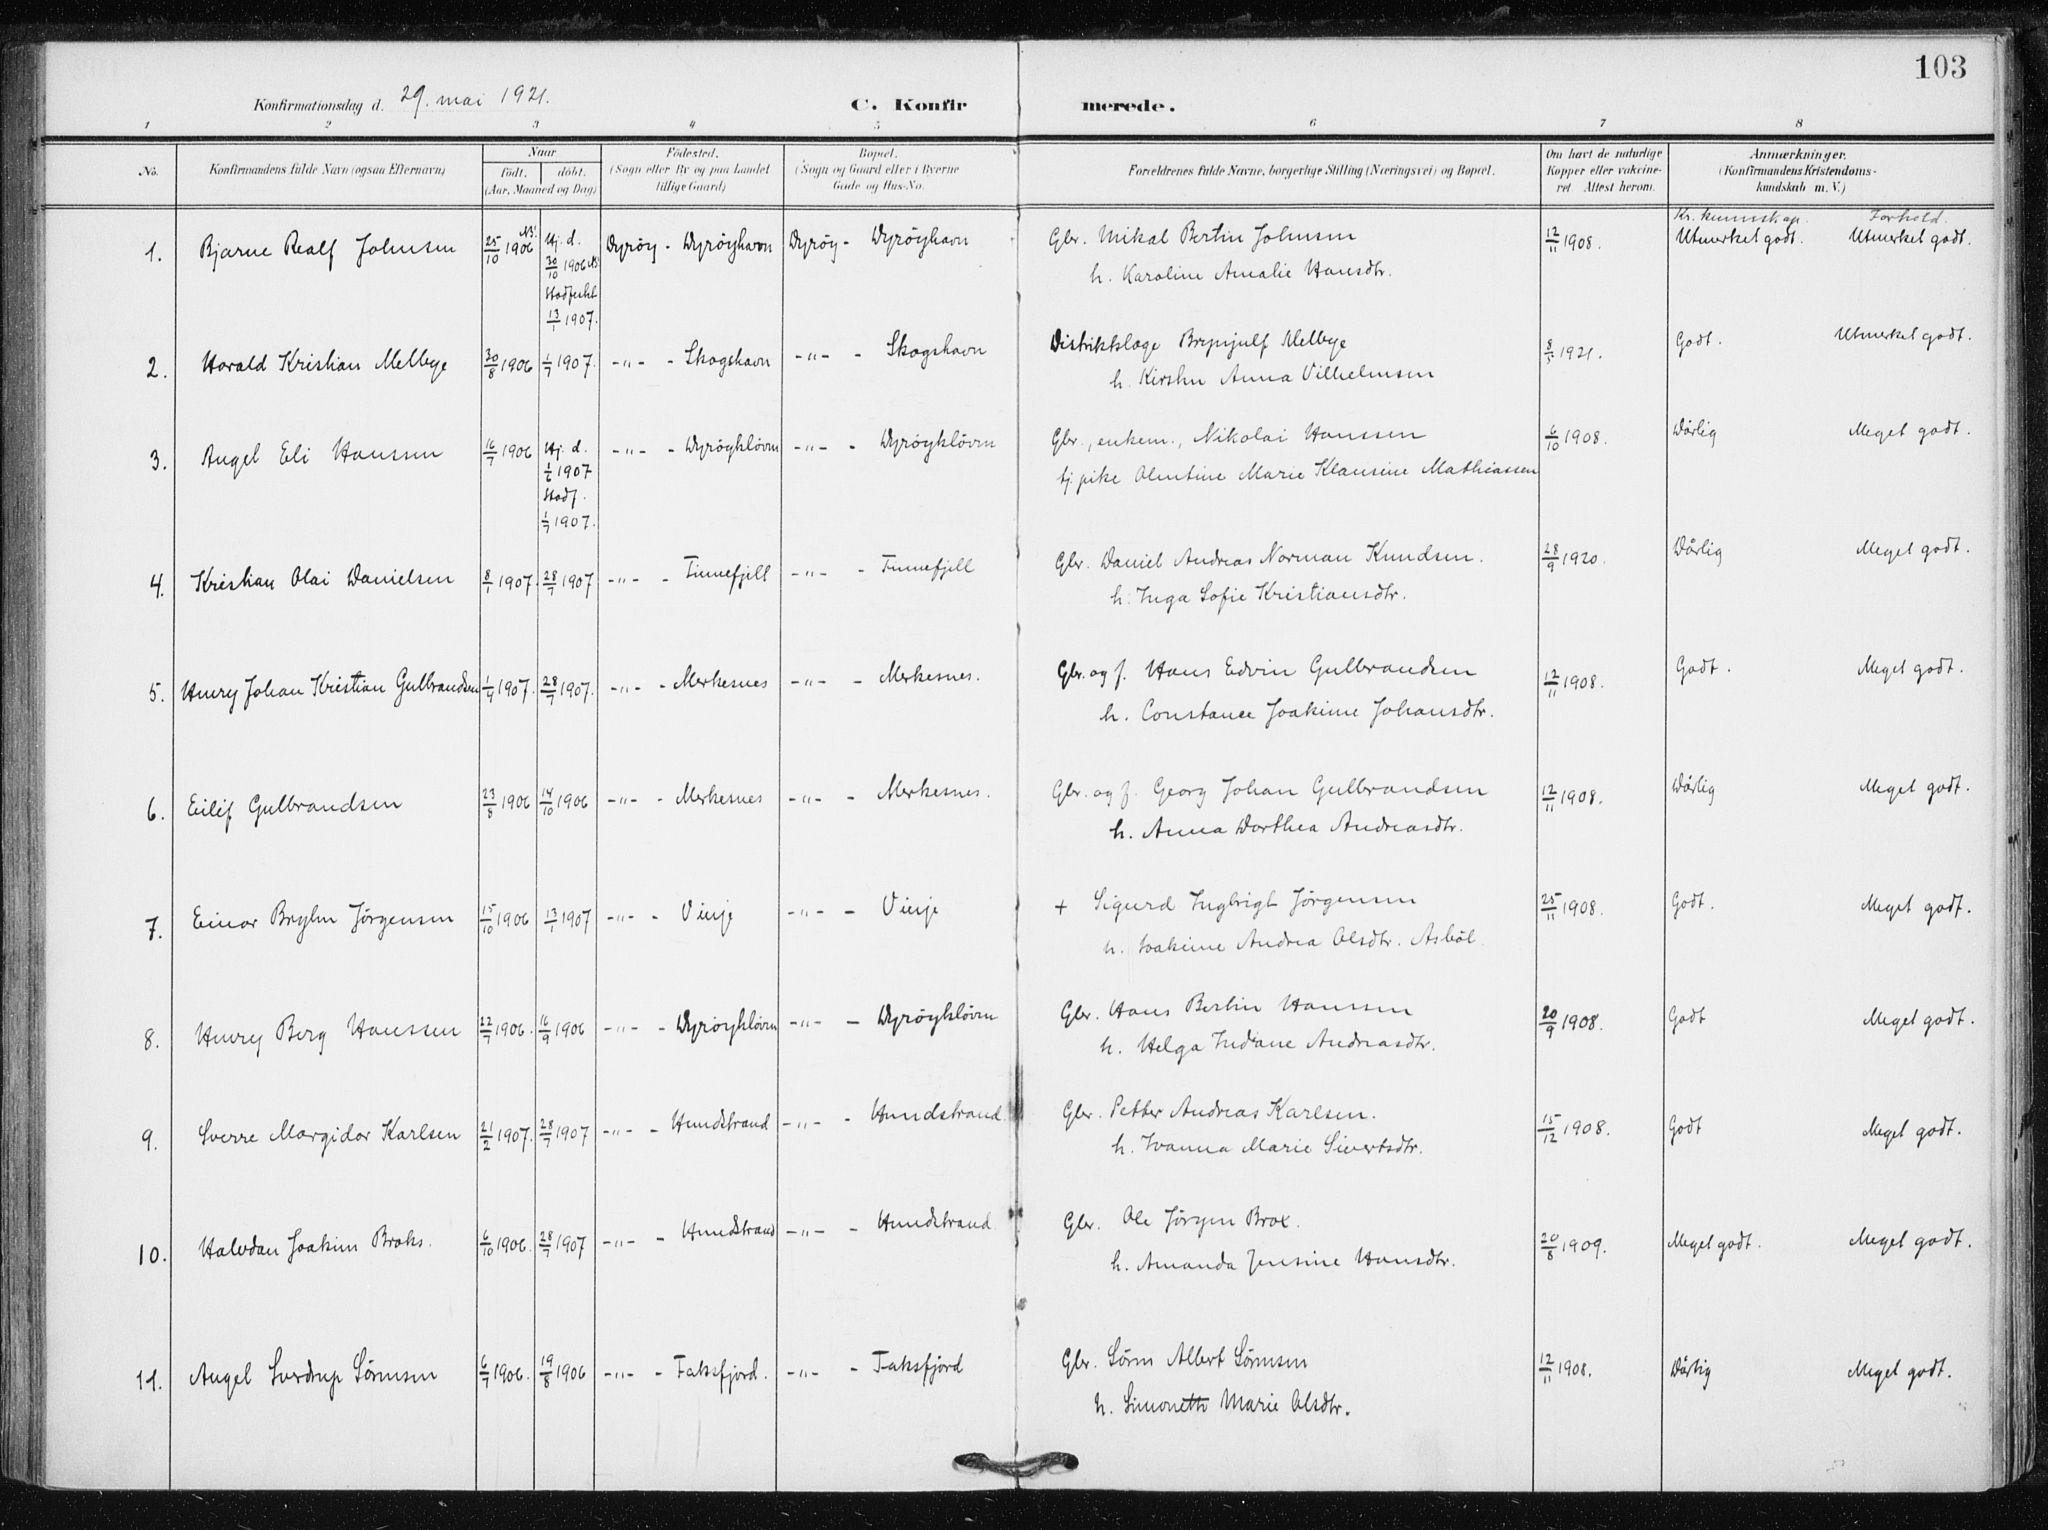 103
Konfirmationsdag d. 29. mai 1921.
C. Konfirmerede.
1 2 3 4 5 6 7 8
No.
Konfirmandens fulde Navn (ogsaa Efternavn)
Naar
født. døbt.
(Aar, Maaned og Dag)
Fødested.
(Sogn eller By og paa Landet
tillige Gaard)
Bopæl.
(Sogn og Gaard eller i Byerne
Gade og Hus-No.
Forældrenes fulde Navne, borgerlige Stilling (Næringsvei) og Bopæl.
Om havt de naturlige
Kopper eller vakcine-
ret Attest herom.
Anmærkninger.
(Konfirmandens Kristendoms-
kundskab m. V.)
Kr. kunnskap. Forhold.
1. Bjarne Realf Johnsen 25/10 1906 Hj. d. Dyrøy - Dyrøyhavn Dyrøy - Dyrøyhavn Gbr. Mikal Bertin Johnsen 12/11 1908. Utmerket godt. Utmerket godt.
30/10 1906 h. Karoline Amalie Hansdtr.
Stadfestet
13/1 1907.
2. Harald Kristian Melbye 30/8 1906 1/7 1907. -"- - Skogshavn -"- - Skogshavn Distriktslæge Brynjulf Melbye 8/5 1921. Godt. Utmerket godt.
h. Kirsten Anna Vilhelmsen
3. Angel Eli Hanssen 16/7 1906 Hj. d. -"- - Dyrøykløvn -"- - Dyrøykløvn Gbr., enkem., Nikolai Hanssen 6/10 1908. Dårlig Meget godt.
1/6 1907 tj. pike Olentine Marie Klausine Mathiassen
Stadf.
1/7 1907.
4. Kristian Olai Danielsen 8/1 1907. 28/7 1907 -"- - Finnefjell -"- - Finnefjell Gbr. Daniel Andreas Norman Knudsen. 28/9 1920. Dårlig Meget godt.
h. Inga Sofie Kristiansdtr.
5. Henry Johan Kristian Gulbrandsen 1/4 1907. 28/7 1907. -"- - Merkesnes -"- - Merkesnes. Gbr. og f. Hans Edvin Gulbrandsen 12/11 1908. Godt. Meget godt.
h. Constance Joakime Johansdtr.
6. Eilif Gulbrandsen 23/8 1906 14/10 1906 -"- - Merkesnes -"- - Merkesnes. Gbr. og f. Georg Johan Gulbrandsen 12/11 1908. Dårlig Meget godt.
h. Anna Dorthea Andreasdtr.
7. Einar Jørgensen 15/10 1906 13/1 1907 -"- - Vinje -"- - Vinje + Sigurd Ingbrigt Jørgensen 25/11 1908. Godt. Meget godt.
h. Joakime Andrea Olsdtr. Asbøl.
8. Henry Berg Hanssen 22/7 1906. 16/9 1906 -"- - Dyrøykløvn -"- - Dyrøykløvn Gbr. Hans Bertin Hanssen 20/9 1908. Godt Meget godt.
h. Helga Indiane Andreasdtr.
9. Sverre Margidor Karlsen 21/2 1907. 28/7 1907 -"- - Hundstrand -"- - Hundstrand Gbr. Petter Andreas Karlsen. 15/12 1908. Godt Meget godt.
h. Ivanna Marie Sivertsdtr.
10. Halvdan Joakim Broks. 6/10 1906. 28/7 1907 -"- - Hundstrand -"- - Hundstrand. Gbr. Ole Jørgen Brox. 20/8 1909. Meget godt. Meget godt.
h. Amanda Jensine Hansdtr.
11. Angel Sverdrup Sørensen 6/7 1906. 19/8 1906 -"- - Faksfjord. -"- - Faksfjord Gbr. Søren Albert Sørensen 12/11 1908. Dårlig Meget godt.
h. Simonette Marie Olsdtr.